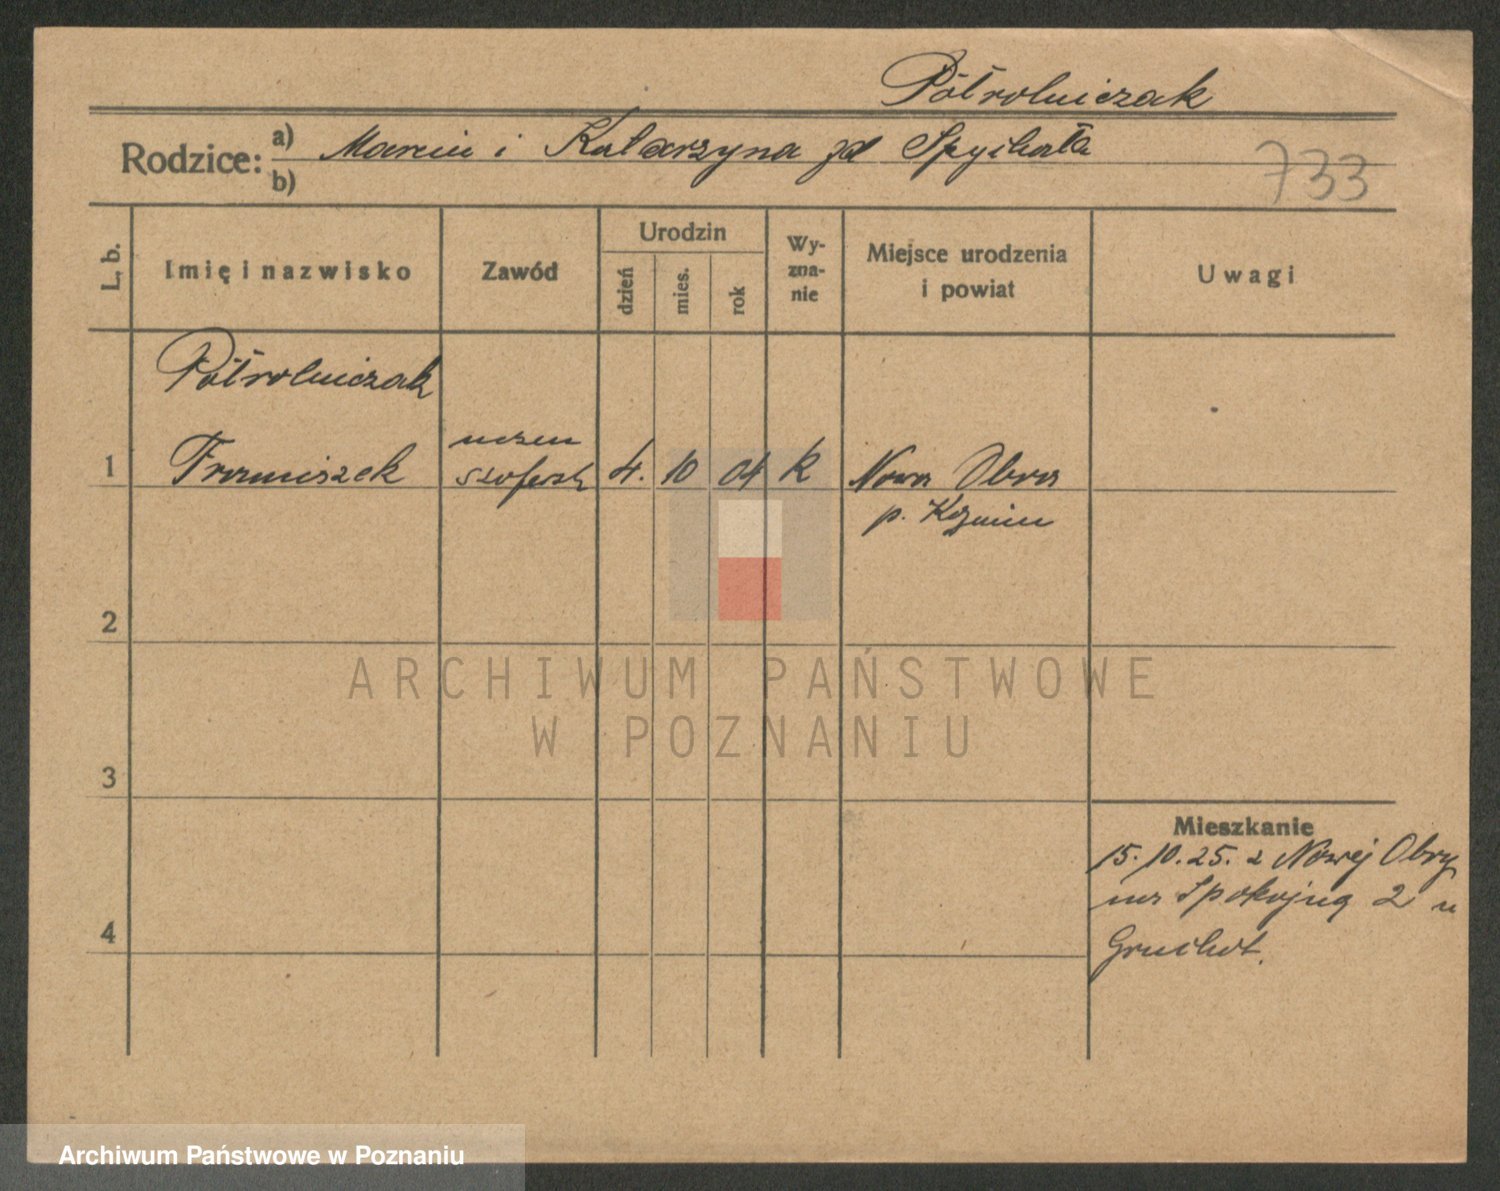 Półrolniczak
Rodzice: a) Marcin i Katarzyna zd Spychała
b)
733
L. b.
Imię i nazwisko
Zawód
Urodzin
dzień
mies.
rok
Wy-
zna-
nie
Miejsce urodzenia
i powiat
Uwagi
Półrolniczak
1 Franciszek
uczen
szofersk
4. 10 04 k
Nowa Obra
p. Kozmin
2
3
4
Mieszkanie
15.10.25. z Nowej Obry
na Spokojną 2 u
Gruchot.
ARCHIWUM PAŃSTWOWE
W POZNANIU
Archiwum Państwowe w Poznaniu